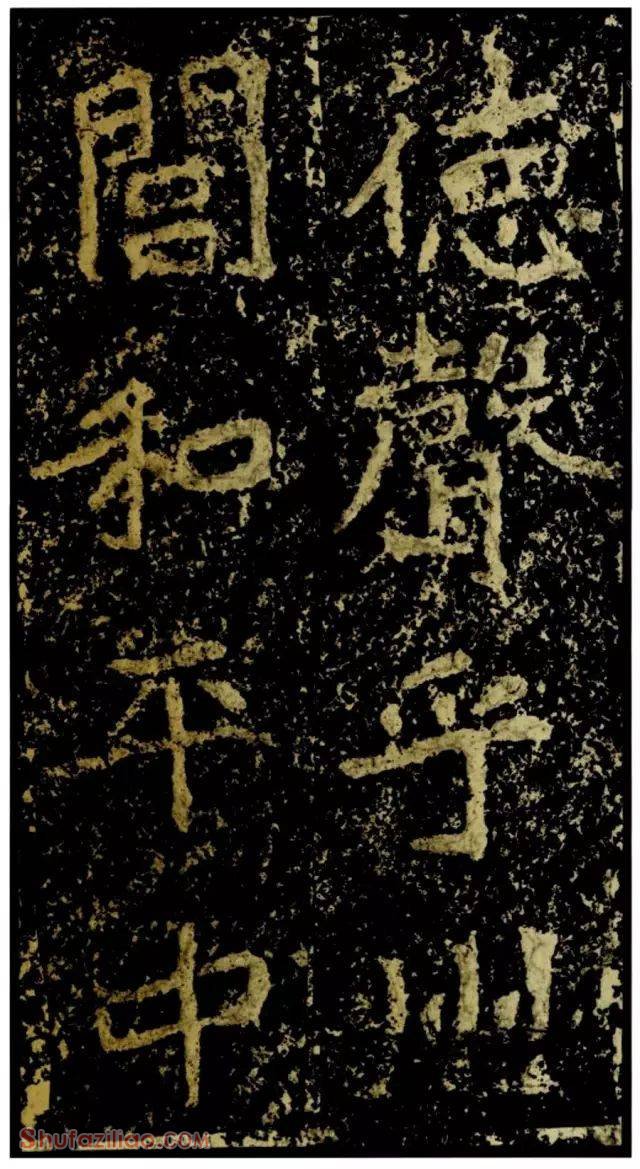 德聲孚
誾和平中
Shufaziliao.com